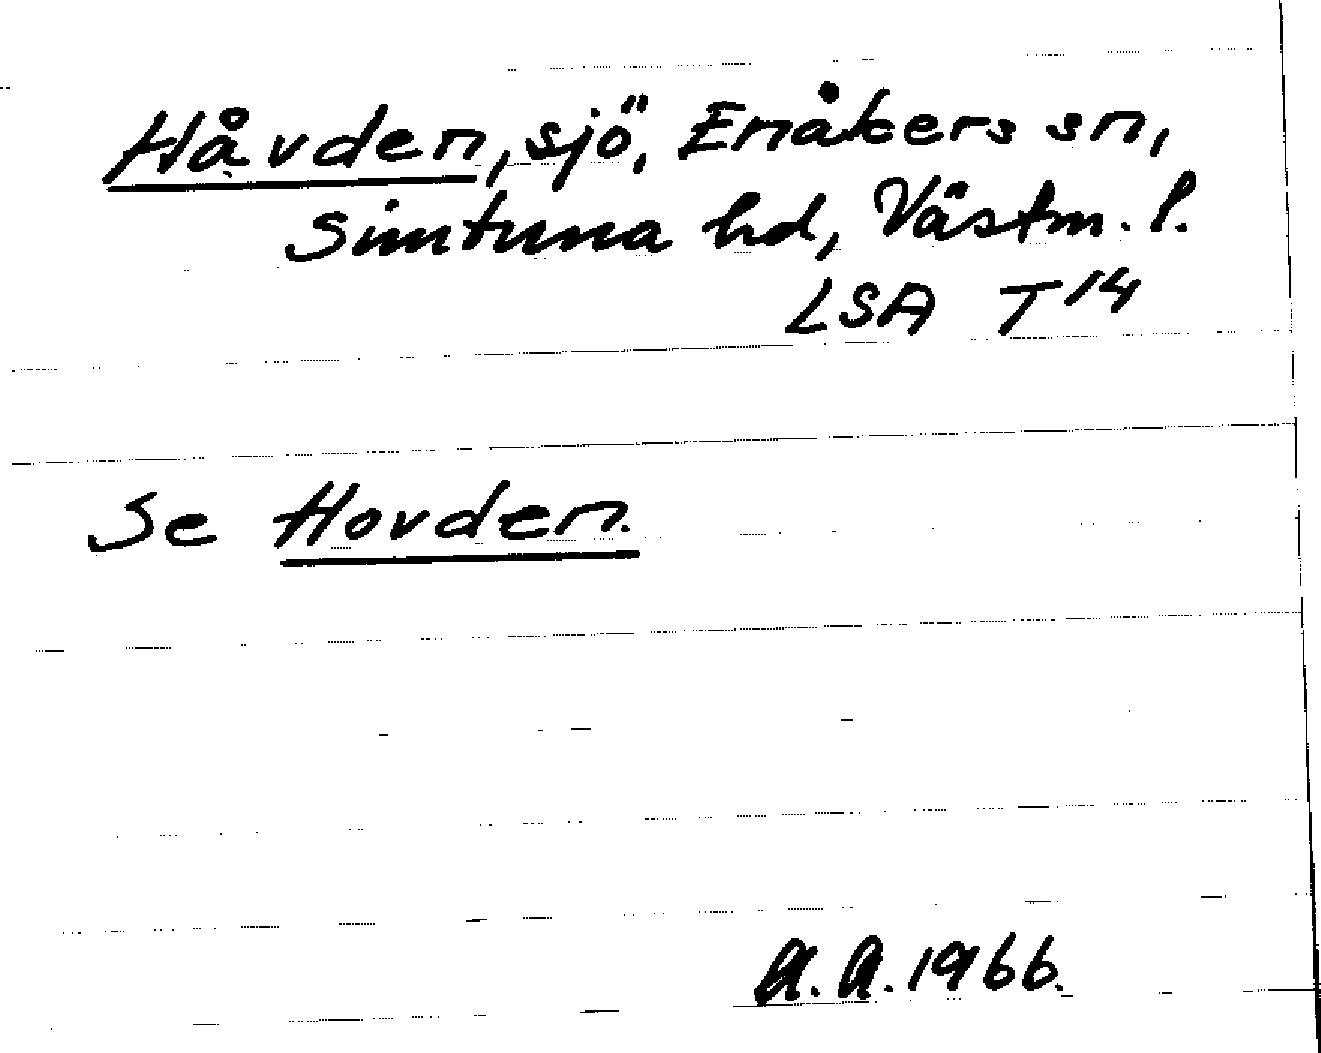 Håvden, sjö, Enåkers sn,
Simtuna hd, Västm. l.
LSA T 14
Se Hovden.
A. A. 1966.